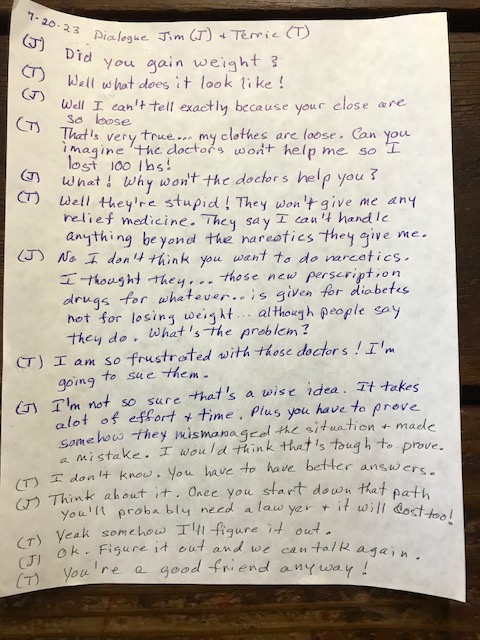 7-20-23 Dialogue Jim (J) + Terrie (T)
(J) Did you gain weight?
(T) Well what does it look like!
(J) Well I can't tell exactly because your close are
so loose
(T) That's very true... my clothes are loose. Can you
imagine the doctors won't help me so I
lost 100 lbs!
(J) What! Why won't the doctors help you?
(T) Well they're stupid! They won't give me any
relief medicine. They say I can't handle
anything beyond the narcotics they give me.
(J) No I don't think you want to do narcotics.
I thought they... those new perscription
drugs for whatever.. is given for diabetes
not for losing weight... although people say
they do. What's the problem?
(T) I am so frustrated with those doctors! I'm
going to sue them.
(J) I'm not so sure that's a wise idea. It takes
alot of effort + time. Plus you have to prove
somehow they mismanaged the situation + made
a mistake. I would think that's tough to prove.
(T) I don't know. You have to have better answers.
(J) Think about it. Once you start down that path
you'll probably need a lawyer + it will cost too!
(T) Yeak somehow I'll figure it out.
(J) Ok. Figure it out and we can talk again.
(T) You're a good friend anyway!